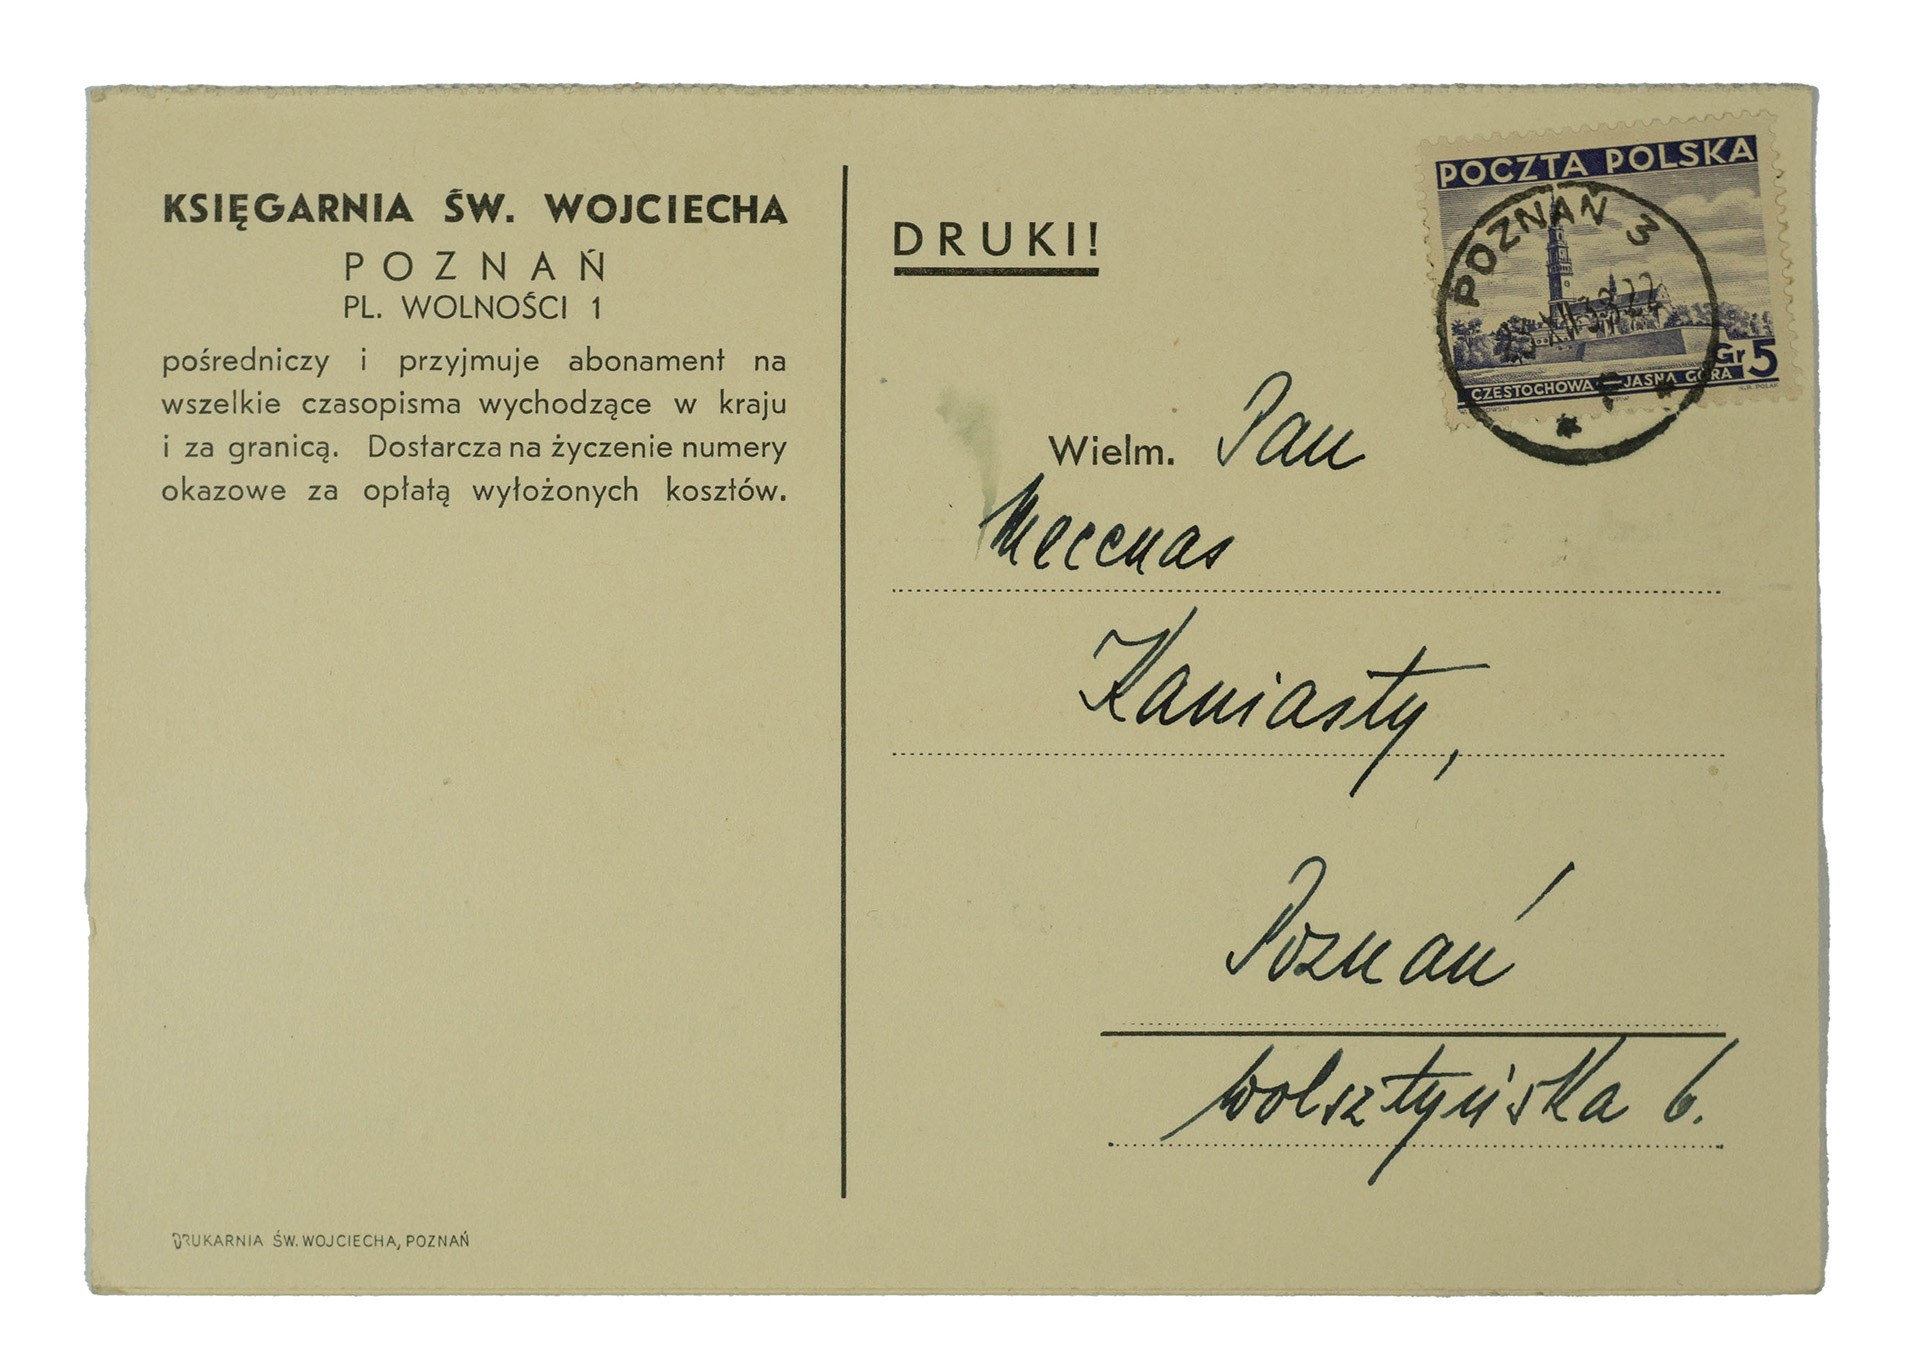 KSIĘGARNIA ŚW. WOJCIECHA
POZNAŃ
PL. WOLNOŚCI 1
pośredniczy i przyjmuje abonament na
wszelkie czasopisma wychodzące w kraju
i za granicą. Dostarcza na życzenie numery
okazowe za opłatą wyłożonych kosztów.
DRUKARNIA ŚW. WOJCIECHA, POZNAŃ
DRUKI!
POCZTA POLSKA
POZNAŃ 3
Gr 5
CZĘSTOCHOWA — JASNA GÓRA
Wielm. Pan
Mecenas
Kaniasty,
Poznań
Wolsztyńska 6.